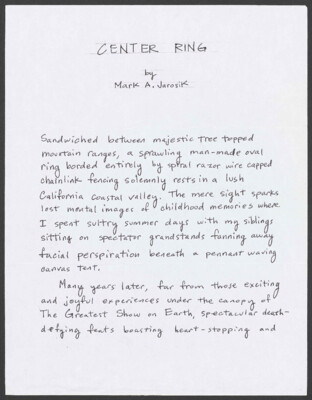 CENTER RING
by
Mark A. Jarosik
Sandwiched between majestic tree topped
mountain ranges, a sprawling man-made oval
ring borded entirely by spiral razor wire capped
chainlink fencing solemnly rests in a lush
California coastal valley. The mere sight sparks
lost mental images of childhood memories where
I spent sultry summer days with my siblings
sitting on spectator grandstands fanning away
facial perspiration beneath a pennant waving
canvas tent.
Many years later, far from those exciting
and joyful experiences under the canopy of
The Greatest Show on Earth, spectacular death-
defying feats boasting heart-stopping and